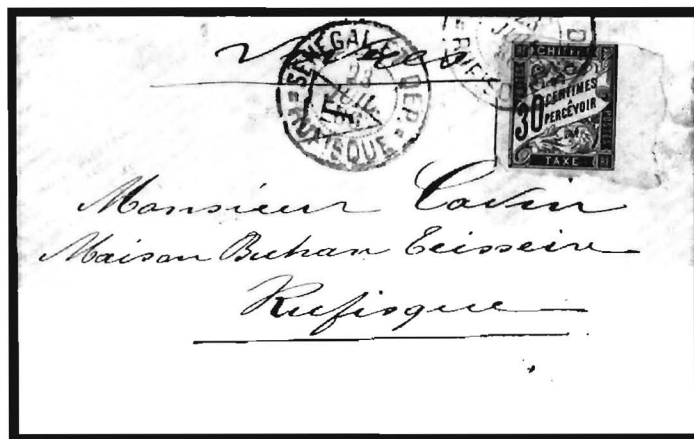 SÉNÉGAL ET DÉP.
23
JUIL
RUFISQUE
23
CHIFFRE
30 CENTIMES
PERCEVOIR
POSTES
TAXE
Monsieur
Maison Buhan Teisseire
Rufisque